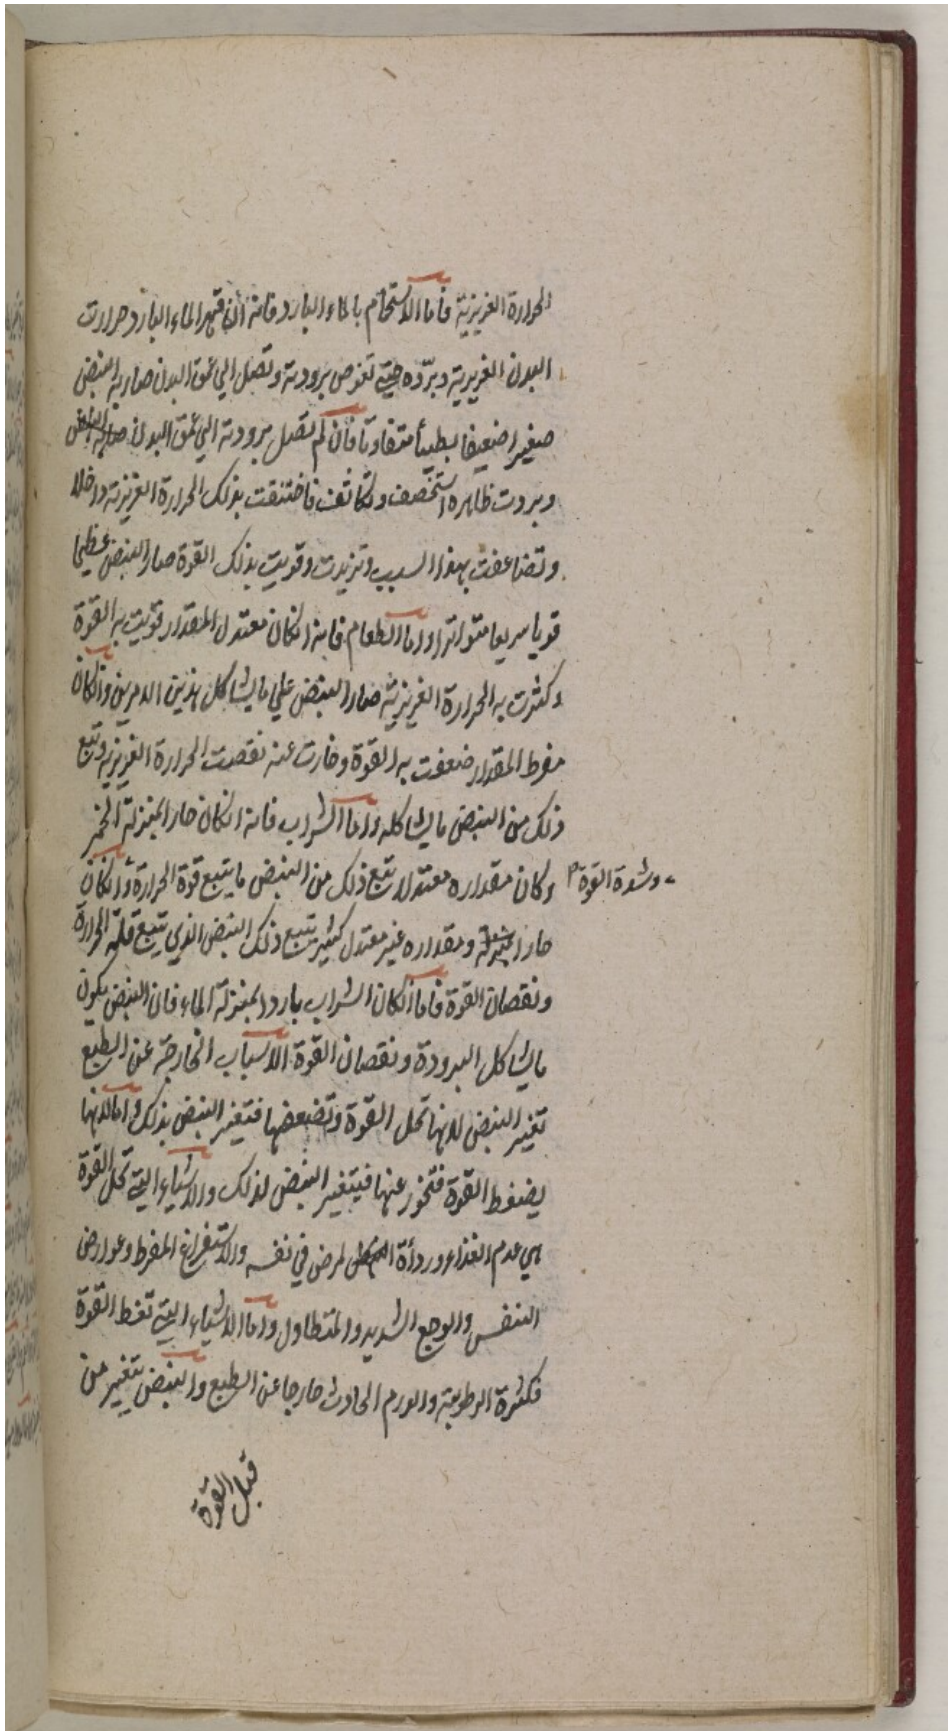 الحرارة الغريزية فأما الاستحمام بالماء البارد فانه ان قهر الماء البارد حرارت
البدن الغريزية وبرّده حتي تغوص برودته وتصل الي عمق البدن صار به النبض
صغيرا ضعيفا بطيئا متفاوتا فان لم تصل برودته الي عمق البدن
وبردت ظاهره استخصف وتكاثف فاختنقت بذلك الحرارة الغريزية داخلا
وتضاعفت بهذا السبب وتزيدت وقويت بذلك القوة صار النبض عظيما
قويا سريعا متواترا واما الطعام فانه ان كان معتدل المقدار قويت به القوة
وكثرت به الحرارة الغريزية صار النبض علي ما يشاكل هذين الامرين وان كان
مفرط المقدار ضعفت به القوة وخارت عنه نقصت الحرارة الغريزية وتبع
ذلك من النبض ما يشاكله واما الشراب فانه ان كان حارا بمنزلة الخمر
وكان مقداره معتدلا تبع ذلك من النبض ما يتبع قوة الحرارة وان كان
وشدة القوة
حارا ومقداره غير معتدل كثير يتبع ذلك النبض الذي يتبع قلة الحرارة
ونقصان القوة فاما ان كان الشراب باردا بمنزلة الماء فان النبض يكون
ما يشاكل البرودة ونقصان القوة الاسباب الخارجة عن الطبع
تغير النبض لانها تحل القوة وتضعفها فتغير النبض بذلك واما لانها
يضغط القوة فتخور عنها فيتغير النبض لذلك والاشياء التي تحل القوة
هي عدم الغذاء وردأة لمرض في نفسه والاستفراغ المفرط وعوارض
النفس والوجع الشديد والمتطاول واما الاشياء التي تغط القوة
فكثرة الرطوبة والورم الحادث خارجا عن الطبع والنبض يتغير من
قبل القوة